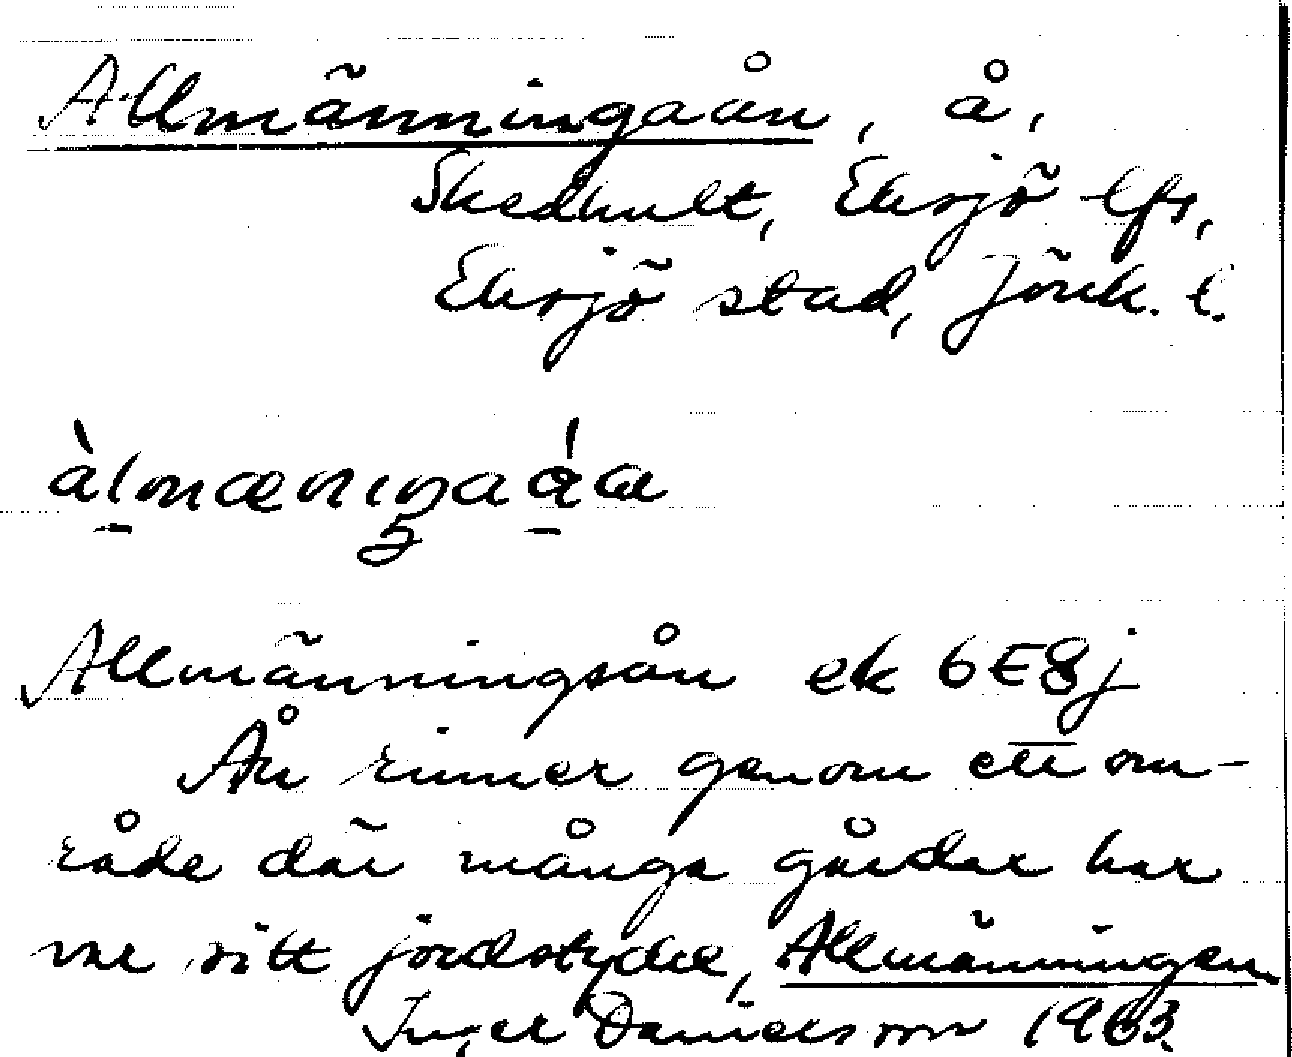 Allmänningaån, å,
Skedhult, Eksjö lfs,
Eksjö stad, Jönk. l.
àlmænıŋaáa
Allmänningsån ek 6E8j
Ån rinner genom ett om-
råde där många gårdar har
var sitt jordstycke, Allmänningen.
Inger Danielsson 1963.